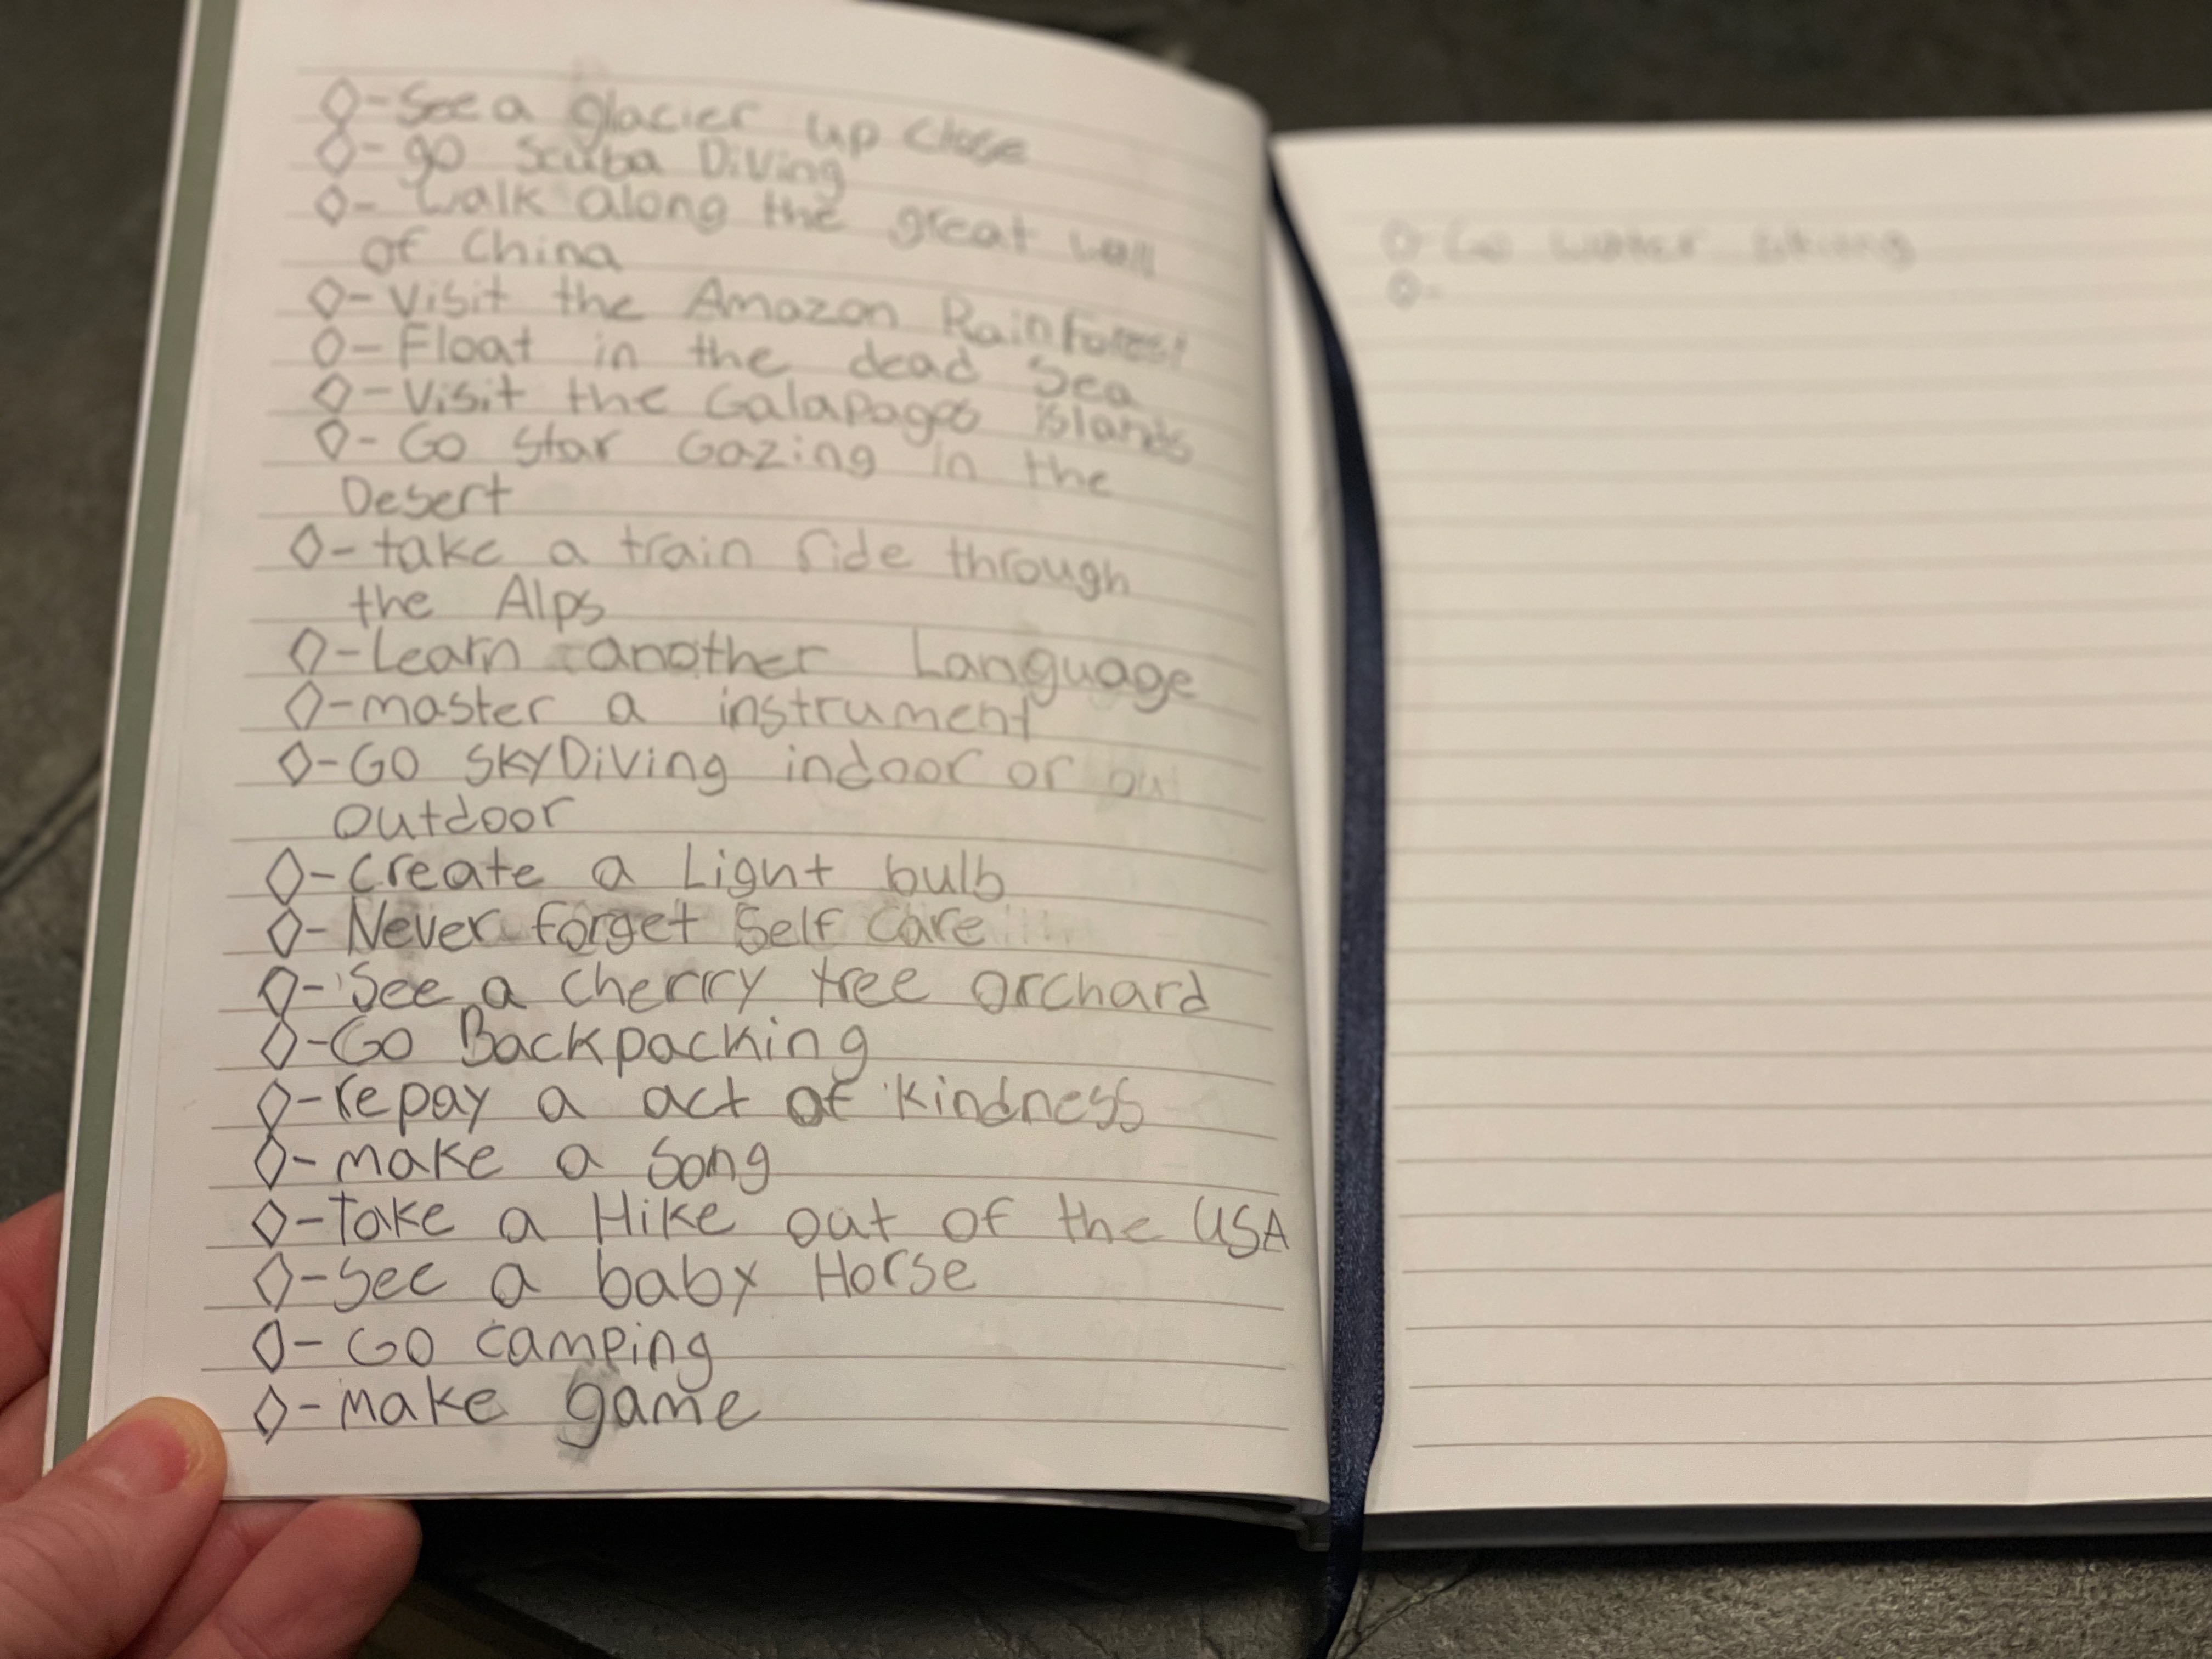 ◇-See a glacier up close
◇-go Scuba Diving
◇- walk along the great wall
of China
◇-Visit the Amazon Rainforest
◇-Float in the dead Sea
◇-Visit the Galapagos islands
◇-Go star Gazing in the
Desert
◇-take a train ride through
the Alps
◇-Learn another Language
◇-master a instrument
◇-GO SKYDiViNg indoor or out
outdoor
◇-create a Light bulb
◇-Never forget Self care
◇-See a cherry tree orchard
◇-Go Backpacking
◇-repay a act of kindness
◇-make a song
◇-Take a Hike out of the USA
◇-See a baby Horse
◇-Go camping
◇-make game
◇-Go water skiing
◇-